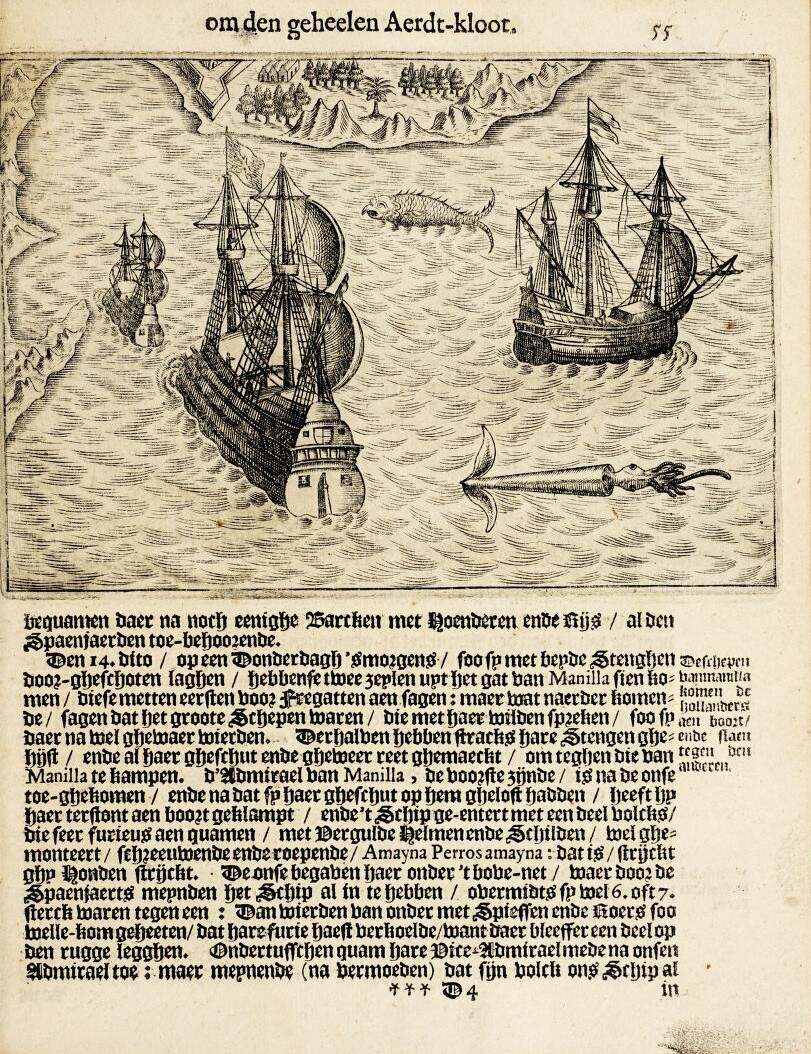 om den geheelen Aerdt-kloot.
55
bequamen daer na noch eenighe Barcken met Hoenderen ende Rijs / al den
Spaenjaerden toe-behoorende.
Den 14. dito / op een Donderdagh 'smorgens / soo sy met beyde Stenghen
door-gheschoten laghen / hebbense twee zeylen uyt het gat van Manilla sien ko-
men / diese metten eersten voor Fregatten aen sagen: maer wat naerder komen-
de / sagen dat het groote Schepen waren / die met haer wilden spreken / soo sy
daer na wel ghewaer wierden. Derhalven hebben stracks hare Stengen ghe-
hijst / ende al haer gheschut ende gheweer reet ghemaeckt / om teghen die van
Manilla te kampen. d'Admirael van Manilla, de voorste zijnde / is na de onse
toe-ghekomen / ende na dat sy haer gheschut op hem ghelost hadden / heeft hy
haer terstont aen boort geklampt / ende 't Schip ge-entert met een deel volcks /
die seer furieus aen quamen / met Vergulde Helmen ende Schilden / wel ghe-
monteert / schreeuwende ende roepende / Amayna Perros amayna: dat is / strijckt
ghy Honden strijckt. De onse begaven haer onder 't bove-net / waer door de
Spaenjaerts meynden het Schip al in te hebben / overmidts sy wel 6. oft 7.
sterck waren tegen een: Dan wierden van onder met Spiessen ende Roers soo
welle-kom geheeten / dat hare furie haest verkoelde / want daer bleeffer een deel op
den rugge legghen. Ondertusschen quam hare Vice-Admirael mede na onsen
Admirael toe: maer meynende (na vermoeden) dat sijn volck ons Schip al
De schepen
van manilla
komen de
hollanders
aen boort /
ende slaen
tegen den
anderen.
*** D 4
in